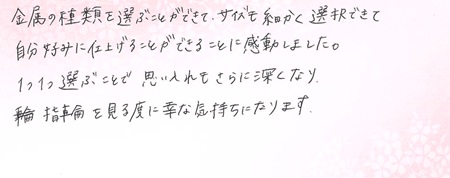 金属の種類を選ぶことができて、サイズも細かく選択できて
自分好みに仕上げることができることに感動しました。
1つ1つ選ぶことで 思い入れもさらに深くなり、
輪 指輪を見る度に幸な気持ちになります。